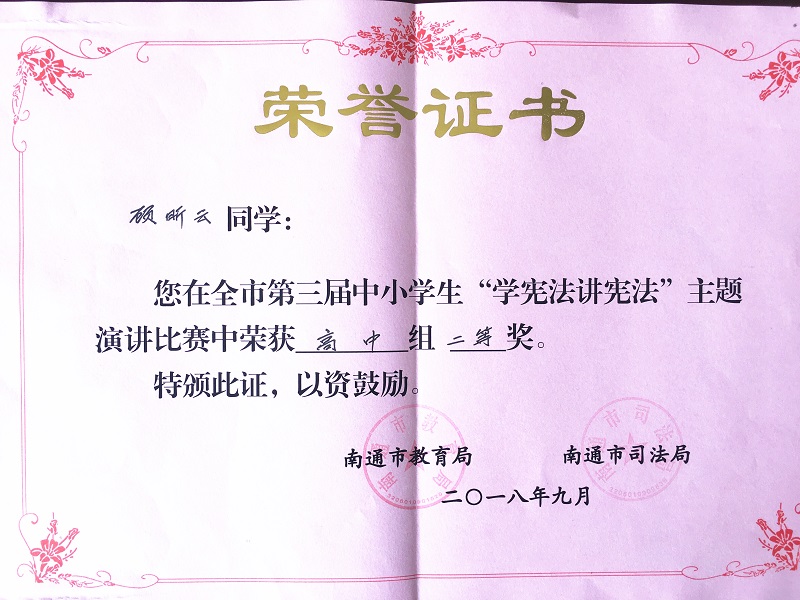 荣誉证书
顾昕云 同学：
您在全市第三届中小学生“学宪法讲宪法”主题
演讲比赛中荣获 高中 组 二等 奖。
特颁此证，以资鼓励。
南通市教育局 南通市司法局
二〇一八年九月